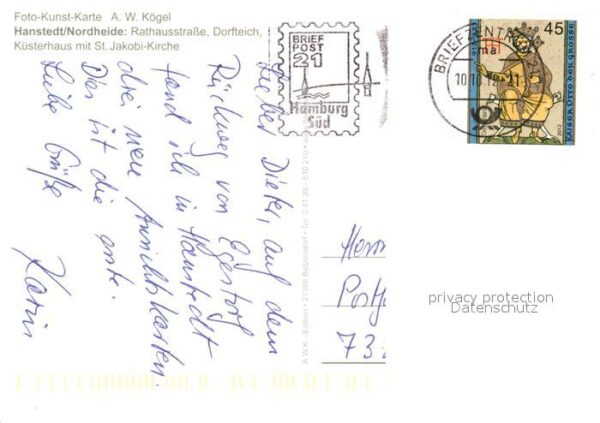 Foto-Kunst-Karte A. W. Kögel
Hanstedt/Nordheide: Rathausstraße, Dorfteich,
Küsterhaus mit St. Jakobi-Kirche
Lieber Dieter, auf dem
Rückweg von Egestorf
fand ich in Hanstedt
drei neue Ansichtskarten.
Das ist die erste.
Liebe Grüße
Karin
BRIEF
POST
21
Hamburg
Süd
BRIEFZENTR
ma
10.10.1
21
45
KAISER OTTO DER GROSSE
Herrn
Postf
73
privacy protection
Datenschutz